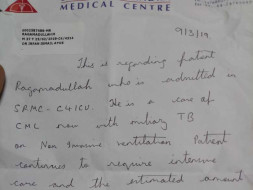 MEDICAL CENTRE
9/3/19
This is regarding patient
Ragamadullah who is admitted in
SRMC - C4ICU. He is a case of
CML now with military TB
on Non Invasive ventilation Patient
continues to require intensive
care and the estimated amount